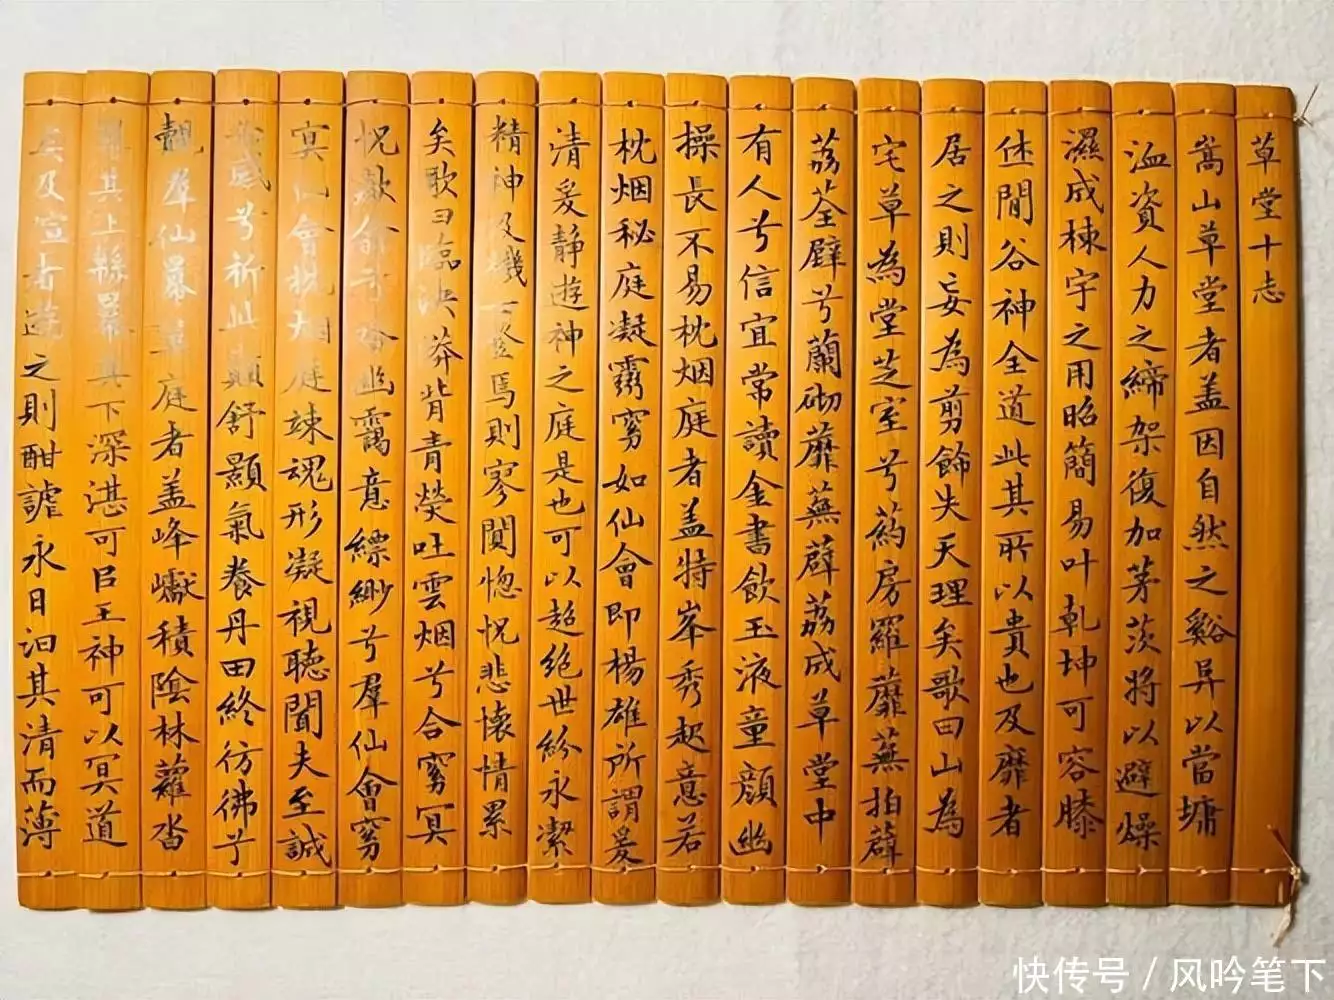 草堂十志
嵩山草堂者盖因自然之谿阜以當墉
洫資人力之締架復加茅茨將以避燥
濕成棟宇之用昭簡易叶乾坤可容膝
休閒谷神全道此其所以貴也及靡者
居之則妄為剪飾失天理矣歌曰山為
宅草為堂芝室兮葯房羅蘼蕪拍薜
荔荃壁兮蘭砌蘼蕪薜荔成草堂中
有人兮信宜常讀金書飲玉液童顏幽
操長不易枕烟庭者盖特峯秀起意若
枕烟秘庭凝霛窅如仙會即楊雄所謂爰
清爰静遊神之庭是也可以超絕世紛永潔
精神及機士登焉則寥闃惚怳悲懷情累
矣歌曰臨泱漭背青熒吐雲烟兮合窅冥
怳欻翕兮沓幽靄意縹緲兮羣仙會窅
冥仙會枕烟庭竦魂形凝視聽聞夫至誠
必感兮祈此巔舒顥氣養丹田終彷彿兮
覯羣仙冪翠庭者盖峰巘積陰林蘿沓
翠其上緜冪其下深湛可㠯王神可以冥道
矣及喧者遊之則酣謔永日汩其清而薄
快传号 / 风吟笔下